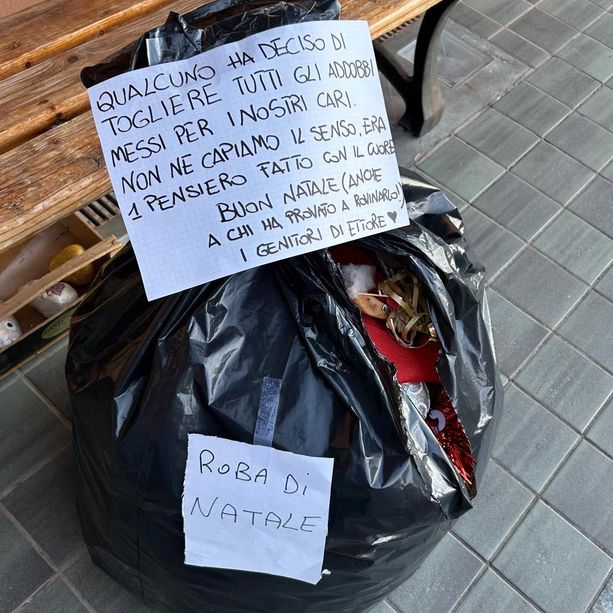 QUALCUNO HA DECISO DI
TOGLIERE TUTTI GLI ADDOBBI
MESSI PER I NOSTRI CARI.
NON NE CAPIAMO IL SENSO, ERA
1 PENSIERO FATTO CON IL CUORE
BUON NATALE (ANCHE
A CHI HA PROVATO A ROVINARLO!)
I GENITORI DI ETTORE ♥
ROBA Di
NATALE